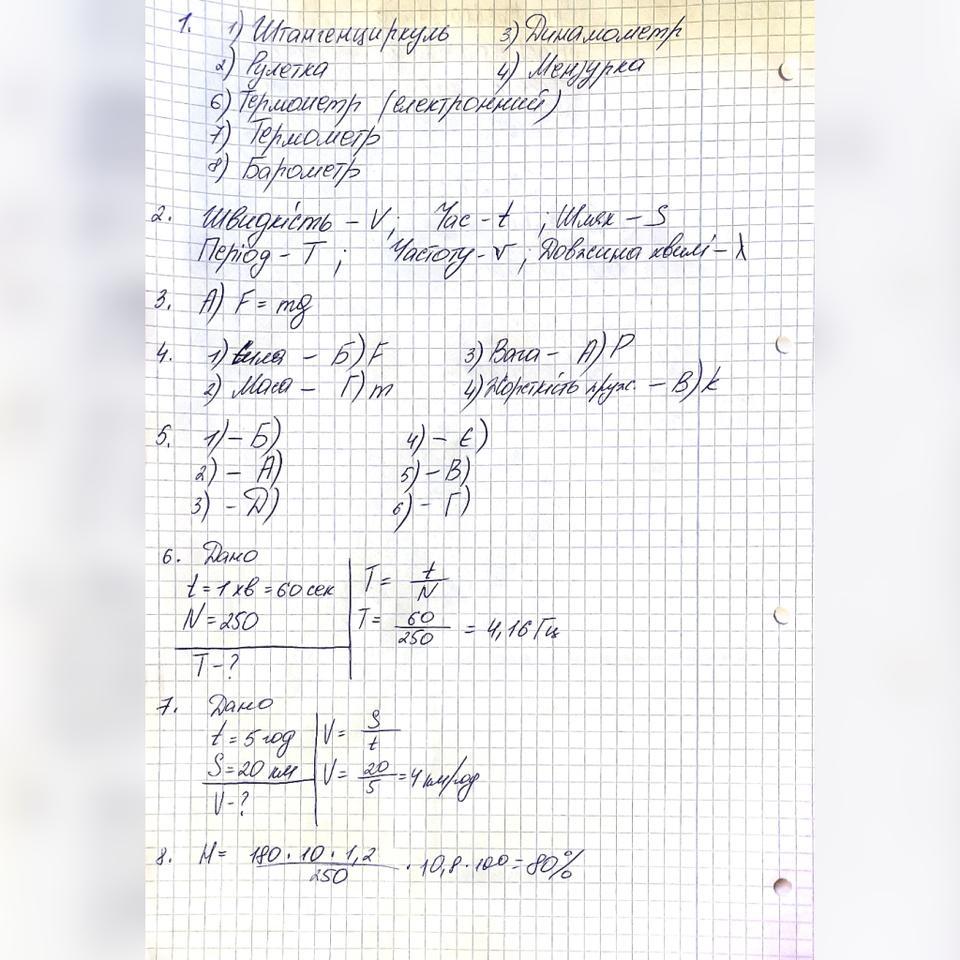 1. 1) Штангенциркуль 3) Динамометр
2) Рулетка 4) Мензурка
6) Термометр (електронний)
7) Термометр
8) Барометр
2. Швидкість - V; Час - t ; Шлях - S
Період - T ; Частоту - ν ; Довжина хвилі - λ
3. А) F = mg
4. 1) Сила - Б) F 3) Вага - А) P
2) Маса - Г) m 4) Жорсткість пруж. - В) k
5. 1) - Б) 4) - Є)
2) - А) 5) - В)
3) - Д) 6) - Г)
6. Дано
t = 1 хв = 60 сек T = t/N
N = 250 T = 60/250 = 4,16 Гц
T - ?
7. Дано
t = 5 год V = S/t
S = 20 км V = 20/5 = 4 км/год
V - ?
8. H = 180 · 10 · 1,2/250 · 10,8 · 100 = 80%